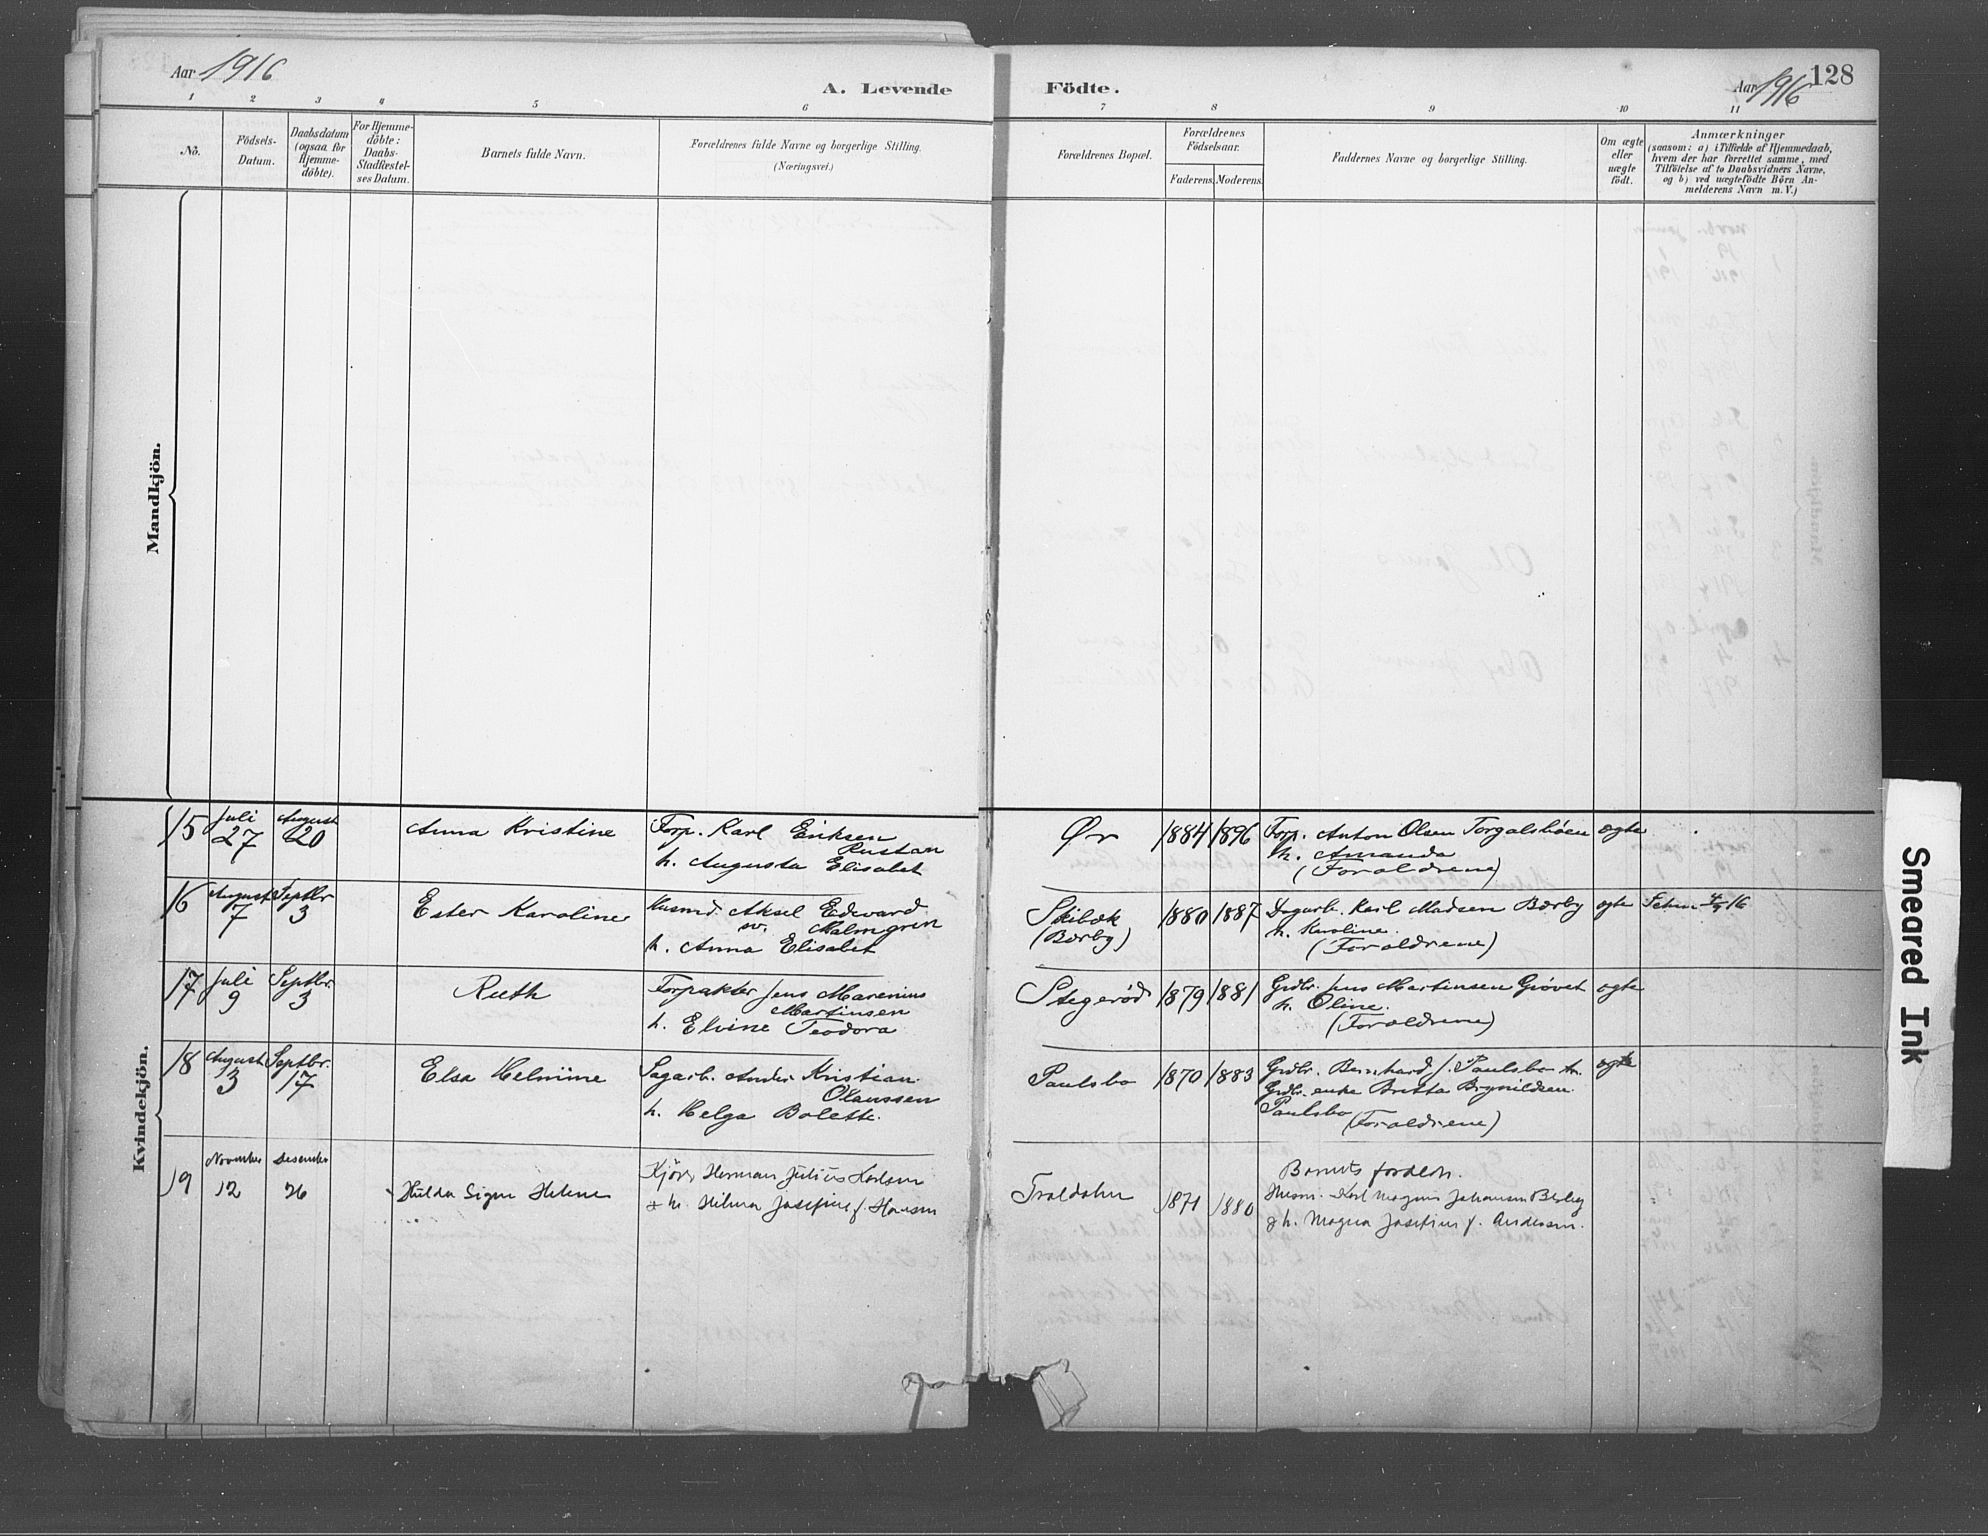 Aar 1916
A. Levende Födte.
Aar 1916
128
1 2 3 4 5 6 7 8 9 10 11
No.
Födsels-
Datum.
Daabsdatum
(ogsaa for
Hjemme-
döbte).
For Hjemme-
döbte:
Daabs-
Stadfæstel-
ses Datum.
Barnets fulde Navn.
Forældrenes fulde Navne og borgerlige Stilling.
(Næringsvei.)
Forældrenes Bopæl.
Forældrenes
Födselsaar.
Faderens. Moderens.
Faddernes Navne og borgerlige Stilling.
Om ægte
eller
uægte
födt.
Anmærkninger
(saasom: a) i Tilfælde af Hjemmedaab,
hvem der har forrettet samme, med
Tilföielse af to Daabsvidners Navne,
og b) ved uægtefödte Börn An-
melderens Navn m. V.)
Mandkjön.
Kvindekjön.
15
Juli
27
August
20
Anna Kristine
Forp. Karl Eriksen
Rustan
h. Augusta Elisabet
Ør
1884
1896
Forp. Anton Olsen Torgalsbøen
h. Amanda
(Forældrene)
ægte
16
August
7
Septbr
3
Ester Karoline
Husmd. Aksel Edvard
sv. Malmgren
h. Anna Elisabet
Skibæk
(Bærby)
1880
1887
Dagarb. Karl Madsen Bærby
h. Karoline.
(Forældrene)
ægte
17
Juli
9
Septbr.
3
Ruth
Forpakter Jens Marenius
Martinsen
h. Elvine Teodora
Stegerød
1879
1881
Grdbr. Jens Martinsen Grøvet
h. Oline.
(Forældrene)
ægte
18
August
13
Septbr.
17
Elsa Helmine
Sagarb. Anders Kristian
Olaussen
h. Helga Bolette.
Paulsbo
1870
1883
Grdbr. Bernhard J. Paulsbo
Grdbr. enke Britta Brynildsen
Paulsbo (Forældrene)
ægte
19
November
12
Desember
26
Hulda Signe Helene
Kjörer Herman Julius Karlsen
h. Hilma Josefine f. Hansen
Troldalen
1871
1880
Barnets foreldre.
Husm. Karl Magnus Johansen Berby
h. Magna Josefine f. Andersen.
Smeared Ink